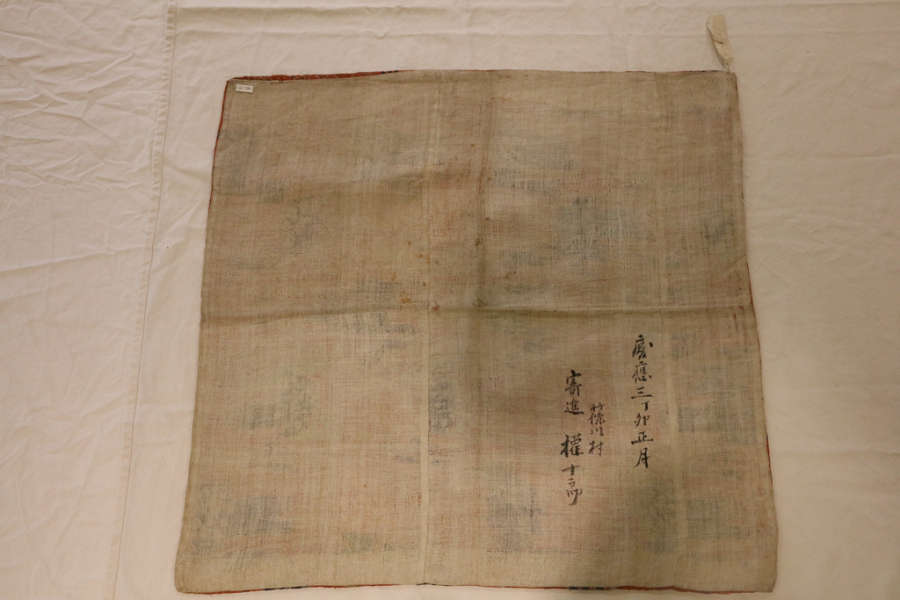 慶應三丁卯正月
川村
寄進 權十郎